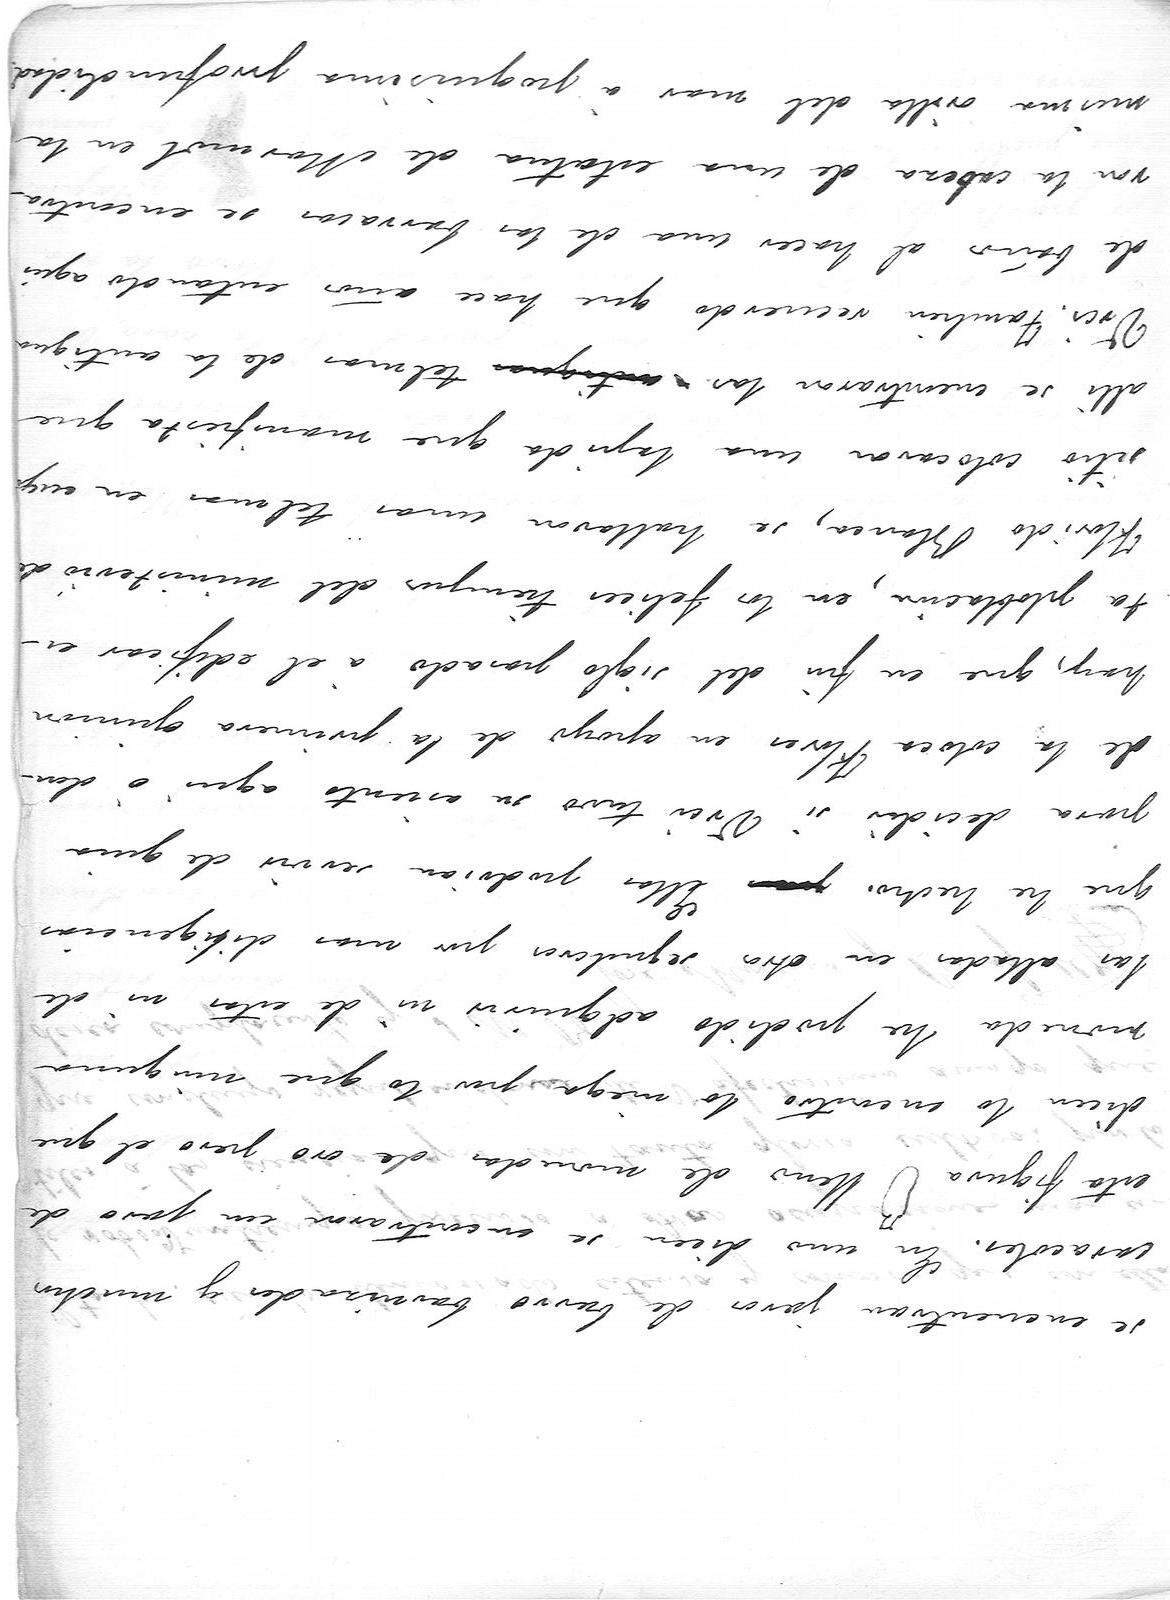 se encuentran jaros de barro barnisados y muchos
caracoles. En uno dicen se encontraron un jaro de
esta figura lleno de monedas de oro pero el que
dicen lo encontró lo niega por lo que ninguna
moneda he podido adquirir ni de estas ni de
las alladas en otros sepulcros por mas diligencias
que he hecho. Ellas podrian servir de guia
para decidir si Urci tuvo su asiento aqui ó don-
de la coloca Flores en apoyo de la primera opinion
hay, que en fin del siglo pasado á el edificar es-
ta poblacion, en los felices tiempos del ministerio de
Florida Blanca, se hallaron unas telmas en cuyo
sitio colocaron una lapida que manifiesta que
alli se encontraron las antiguas telmas de la antigua
Urci. Tambien recuerdo que hace años estando aqui
de baños al hacer una de las barracas se encontra-
ron la cabeza de una estatua de Marmol en la
misma orilla del mar á poquisima profundidad